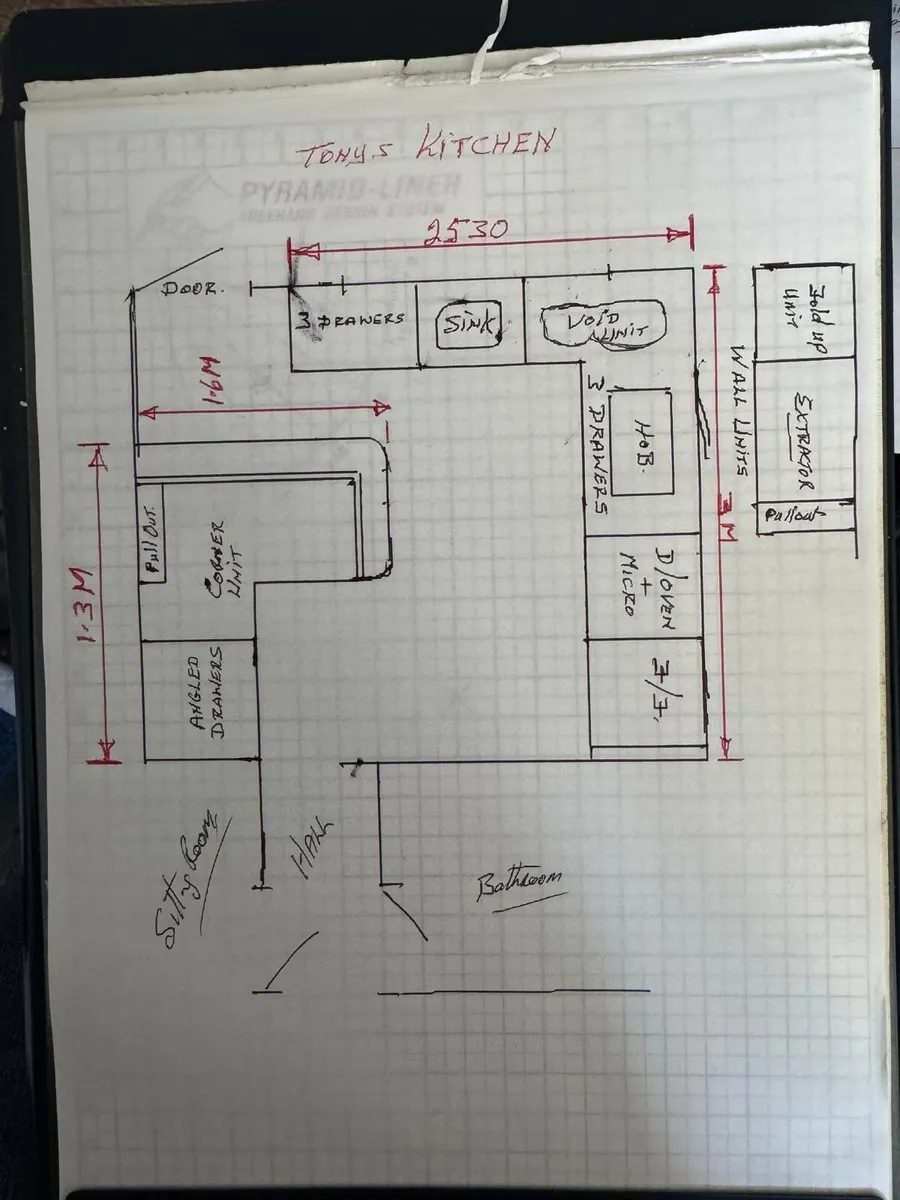 TONYS KITCHEN
PYRAMID-LINER
2530
DOOR.
3 DRAWERS
SINK
VOID
UNIT
1.6M
3 DRAWERS
HOB.
WALL UNITS
3M
Fold up
Unit
EXTRACTOR
Pullout
Pull OUT.
CORNER
UNIT
1.3M
D/OVEN
+
MICRO
F/F.
ANGLED
DRAWERS
Sitting Room
HALL
Bathroom